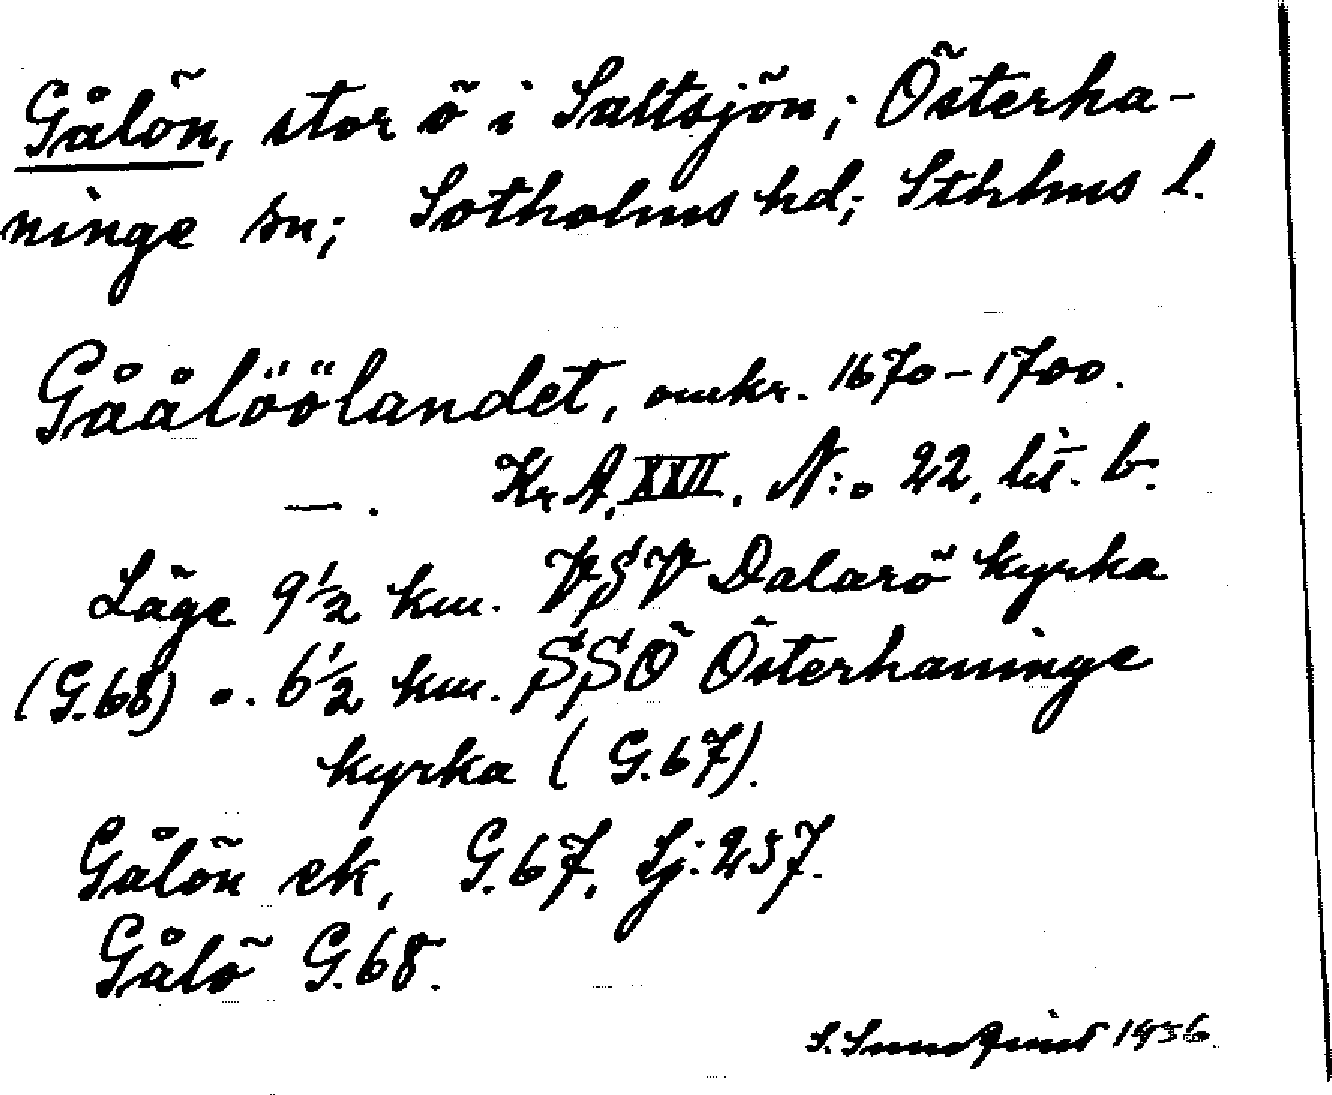 Gålön, stor ö i Saltsjön; Österha-
ninge sn; Sotholms hd; Sthlms l.
Gåålöölandet, omkr. 1670-1700.
—. Kr. A. XXII. N:o 22, lit. b.
Läge 9½ km. VSV Dalarö kyrka
(G.68) o. 6½ km. SSÖ Österhaninge
kyrka (G.67).
Gålön ek, G.67, Sj: 257.
Gålö G.68.
S. 1936.